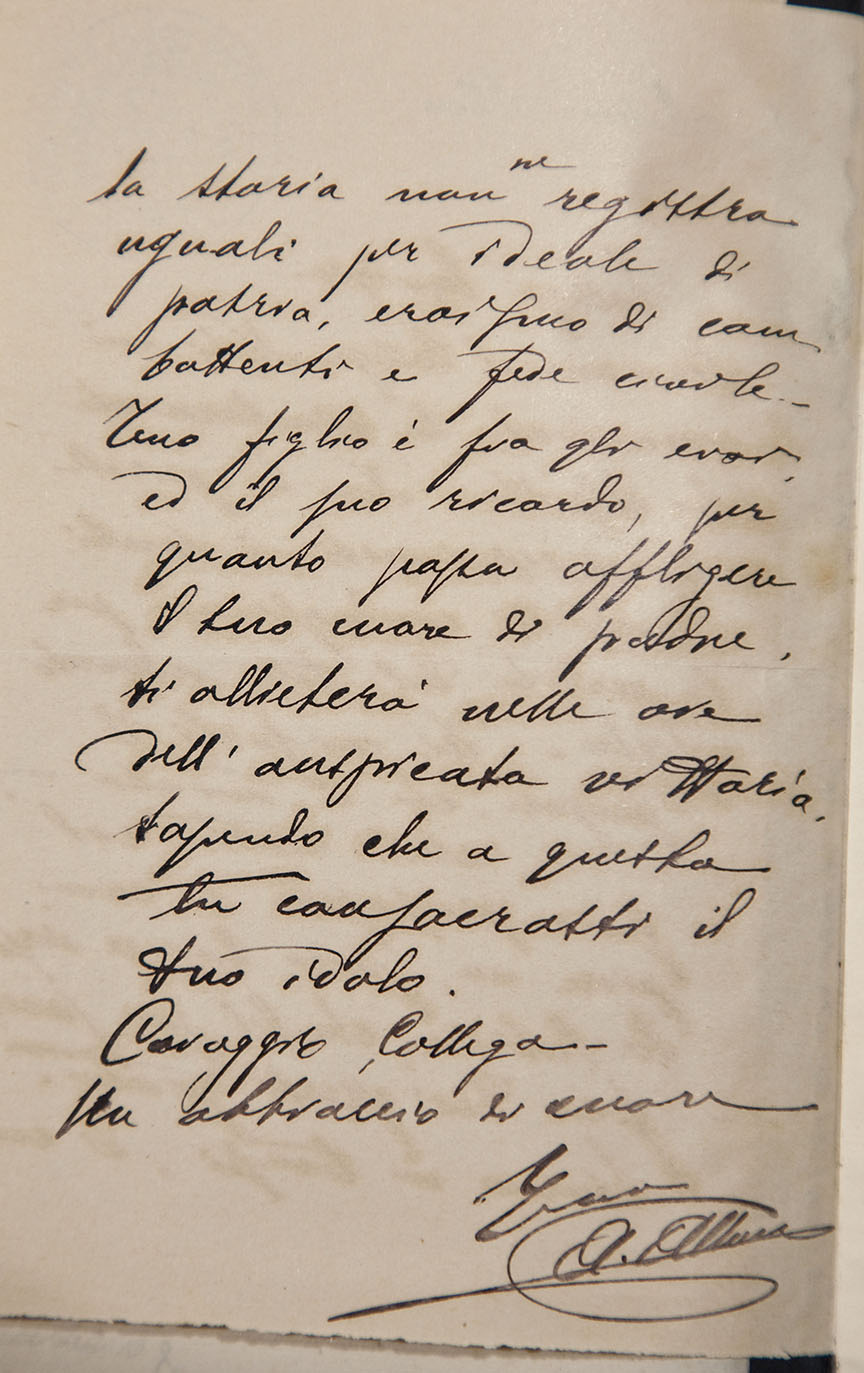 la storia non ne registra
uguali per ideale di
patria, eroismo di com
battenti e fede civile -
Tuo figlio è fra gli eroi,
ed il suo ricordo, per
quanto possa affligere
il tuo cuore di padre,
ti allieterà nelle ore
dell'auspicata vittoria,
sapendo che a questa
tu consacrasti il
tuo idolo.
Coraggio, Collega -
Un abbraccio di cuore
Tuo
A.